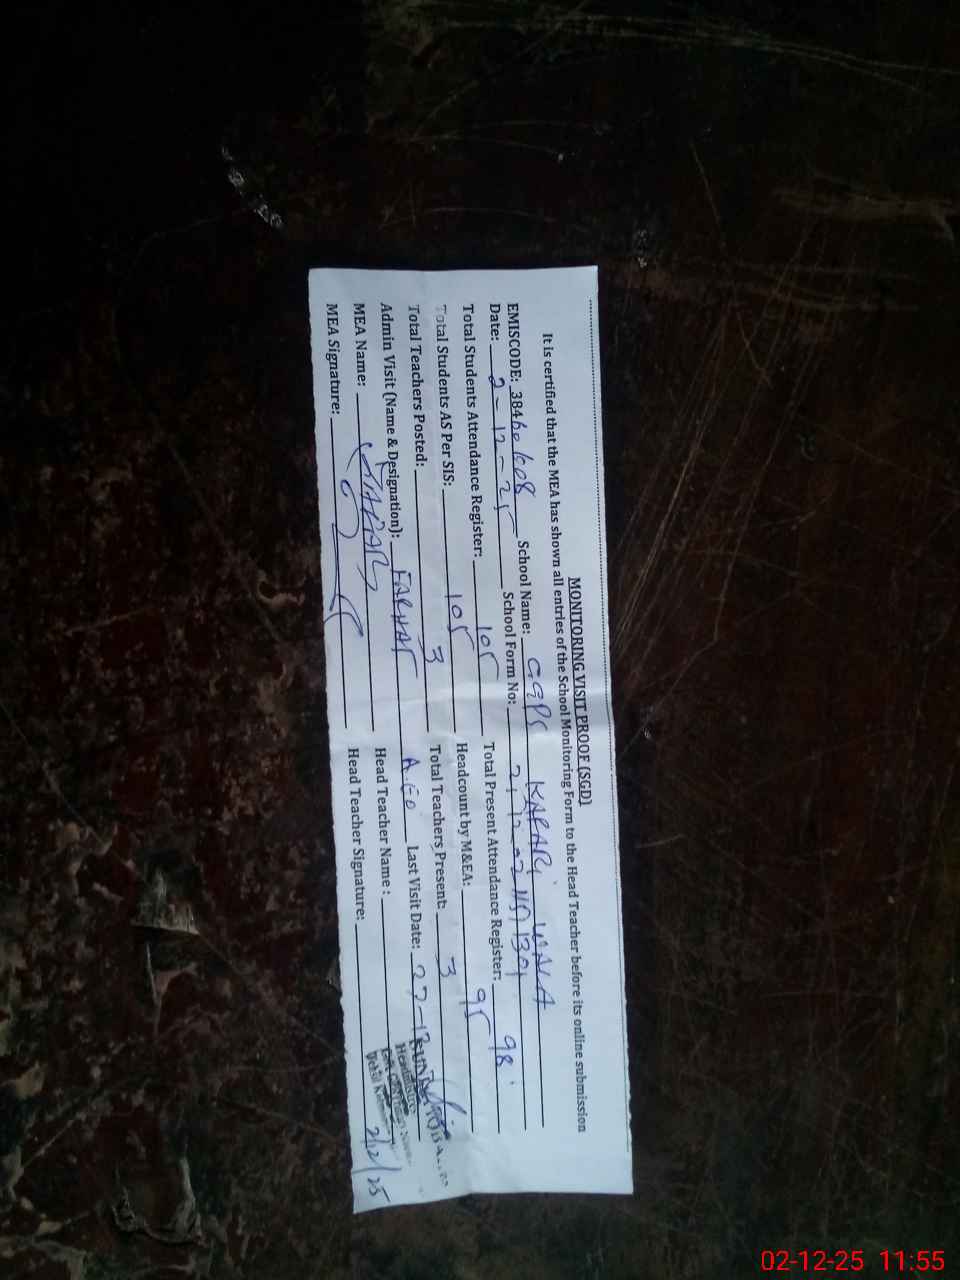 MONITORING VISIT PROOF (SGD)
It is certified that the MEA has shown all entries of the School Monitoring Form to the Head Teacher before its online submission
EMISCODE: School Name: GGPS KAPARI WALA
Date: 2-12-25 School Form No:
Total Students Attendance Register: 105 Total Present Attendance Register: 98
Total Students AS Per SIS: 105 Headcount by M&EA: 95
Total Teachers Posted: 3 Total Teachers Present: 3
Admin Visit (Name & Designation): FARHAT A.EO Last Visit Date:
MEA Name: Head Teacher Name :
MEA Signature: Head Teacher Signature:
2/12/25
02-12-25 11:55